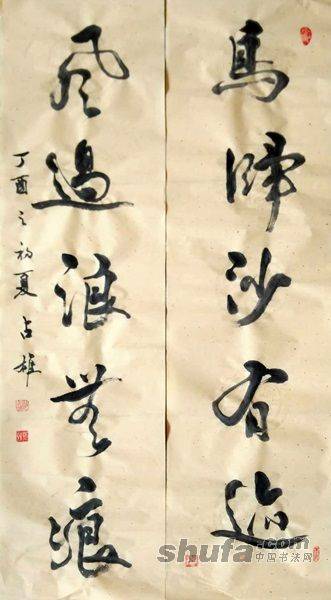 鳥歸沙有迹
風過浪無痕
丁酉之初夏 占雄
shufa.com
中国书法网